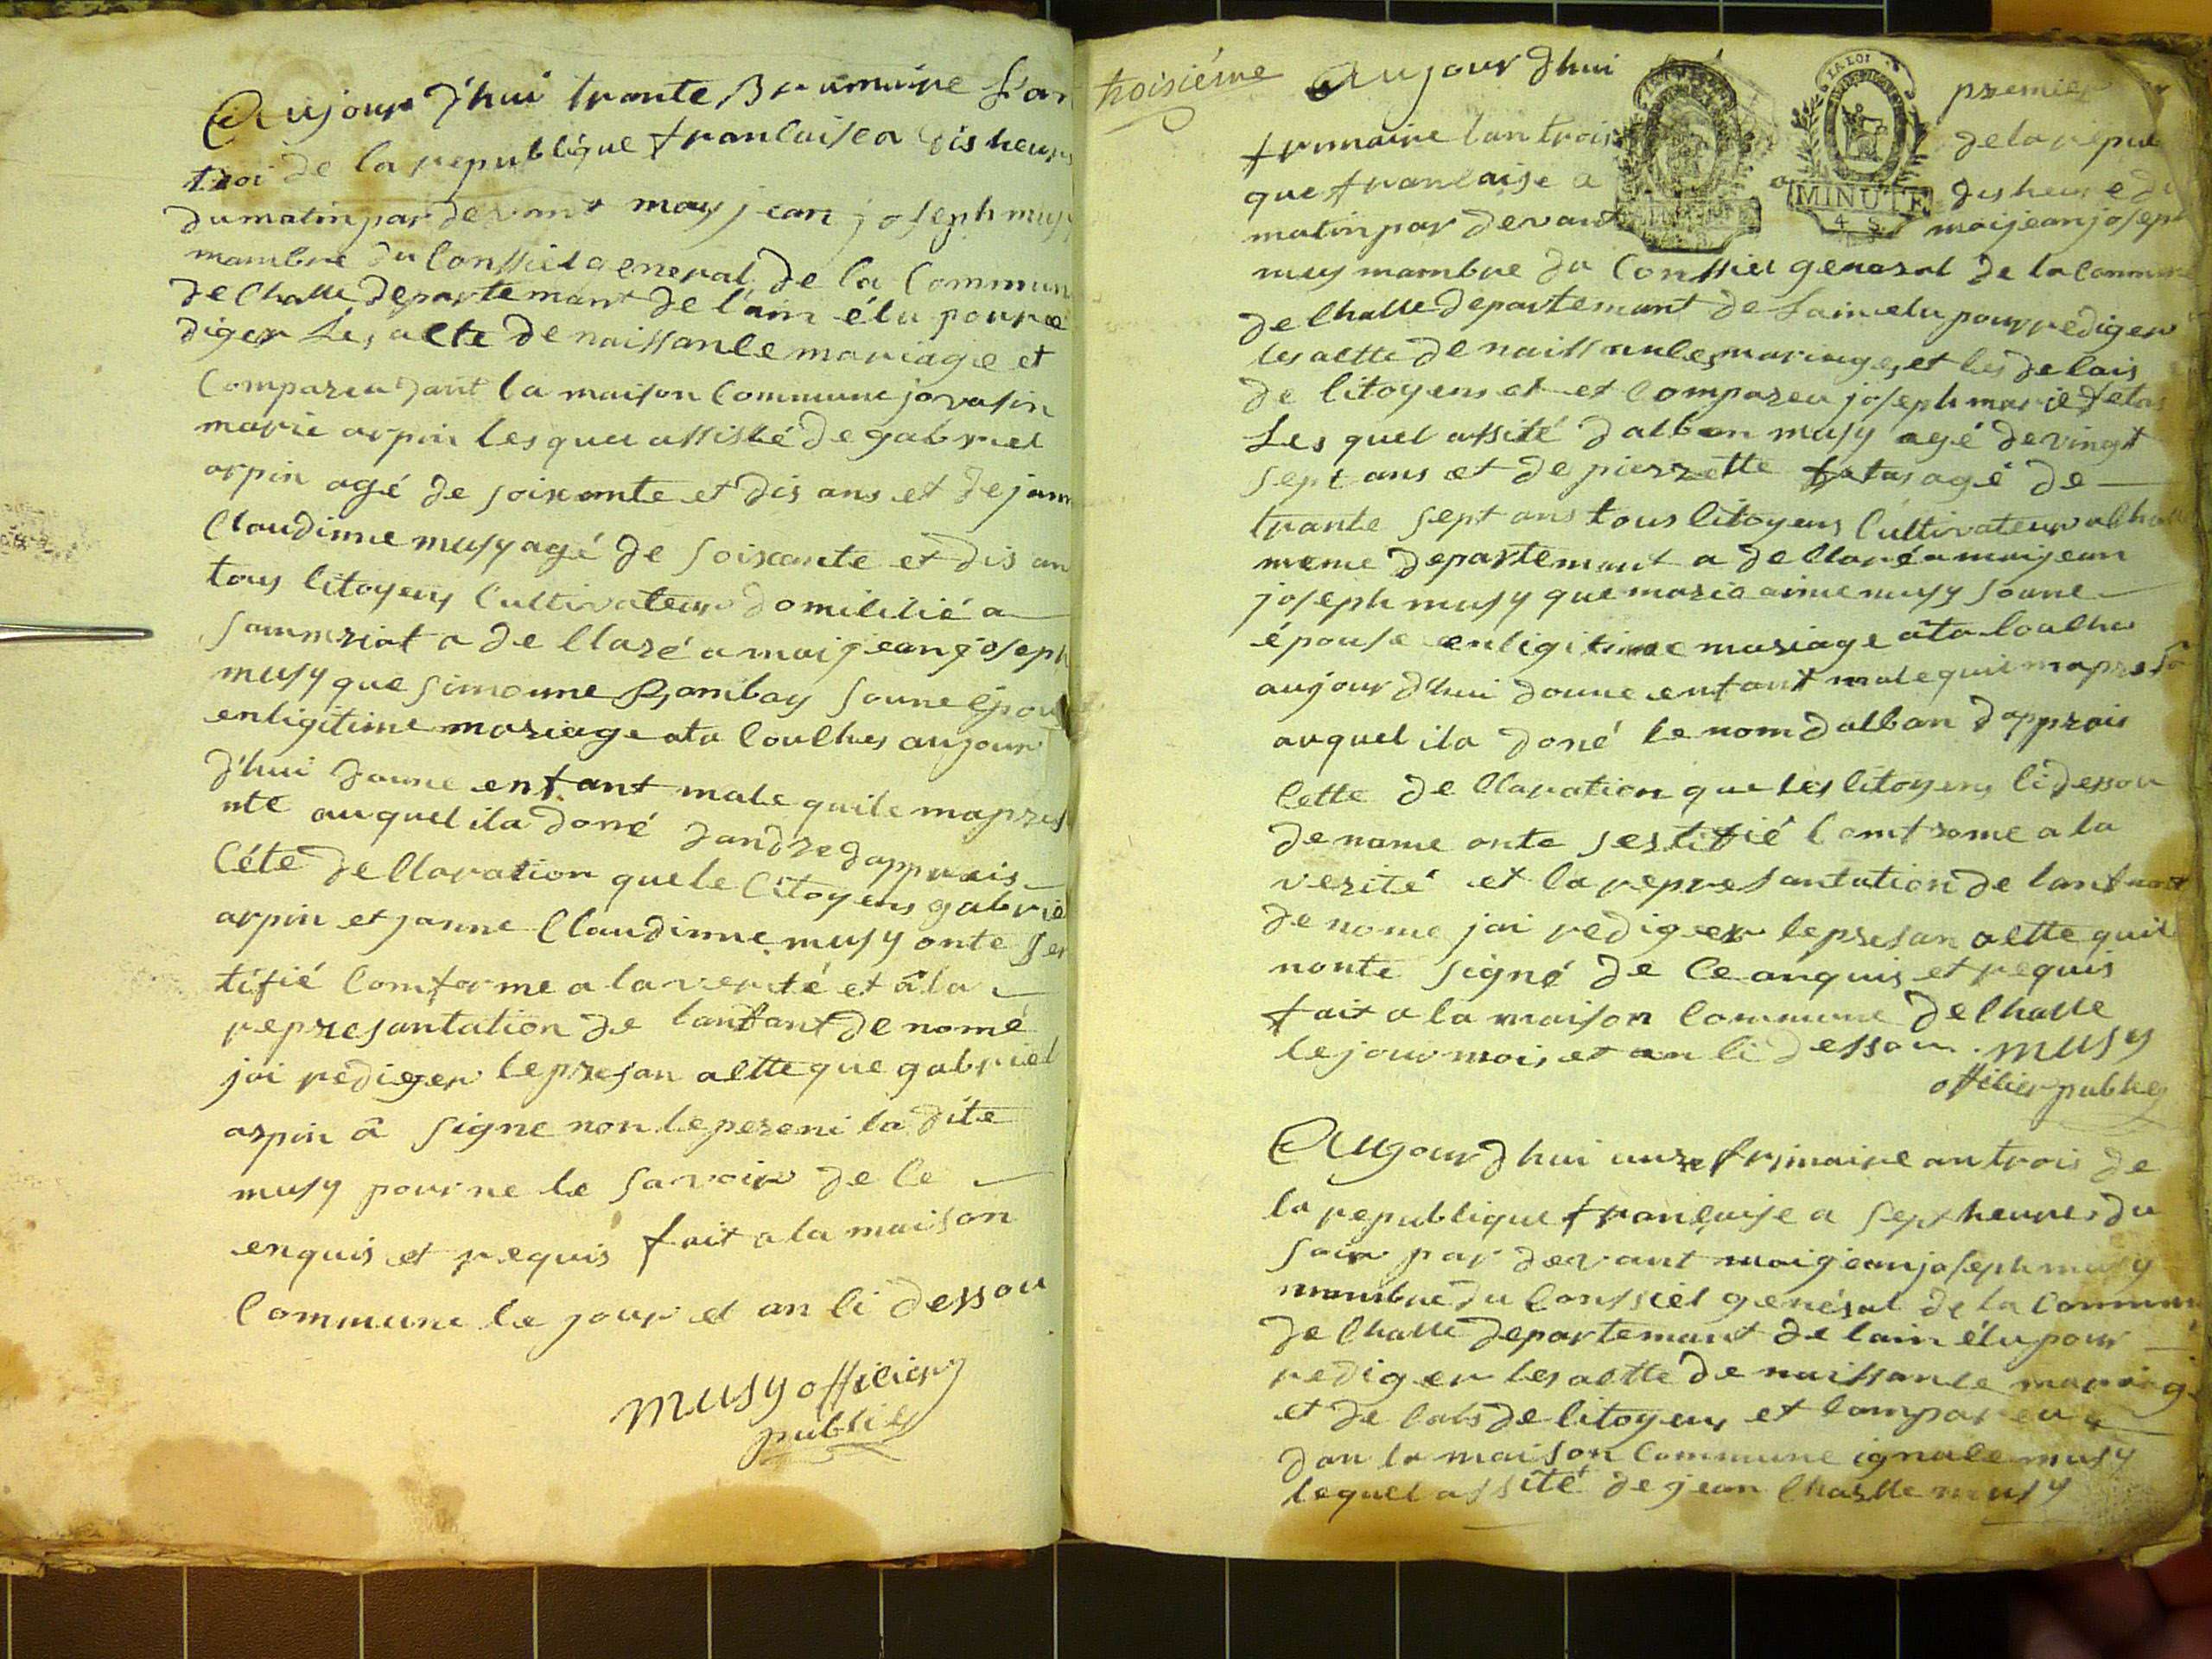 Aujour d'hui trante Brumaire L'an
troi de la republique francaise a dis heurs
du matin par devant moy jean joseph musy
mambre du Conssiel general de la Commun
de Challe departemant de l'ain élu pour re
diger Les acte de naissance mariage et
Comparu dant la maison Commune
marie arpin les quel assisté de gabriel
arpin agé de soixante et dis ans et de jann
Claudinne musy agé de soixante et dis an
tous Citoyens Cultivateur domicilié a
a declaré a moi jean joseph
musy que simonne sonne Epou
enligitime mariage ata couches aujour
d'hui doune enfant male quile mapres
nte auquel ila doné dandre dapprais
Céte declaration que le Citoyens gabrie
arpin et janne Claudinne musy onte ser
tifié Comforme a la verité et a la
represantation de lanfant de nomé
jai rediger lepresan actte que gabriel
arpin a signe non le pere ni la dite
musy pour ne le savoir de ce
enquis et requis fait a la maison
Commune le jour et an ci dessou
musy officier
public
troisiéme
Aujour dhui premier
frimaire lan trois de la repu
que francaise a dis heure du
matin par devant moi jean joseph
LA LOI
MINUTE
4 S
musy mambre du Conssiel general de la Commune
de Challe departemant de Lain elu pour rediger
les actte de naissances mariages et les de cais
de Citoyens et et Comparu joseph marie fetas
Les quel assité dalban musy agé de vingt
sept ans et de pierrette fetas agé de
trante sept ans tous Citoyens Cultivateur a Challe
meme departemant a declaré a moi jean
joseph musy que marie aime musy sonne
épouse enligitime mariage ata couche
aujour dhui doune enfant male quil mapresa
auquel ila doné le nom dalban dapprais
Cette declaration que les Citoyens Cidessou
denome onte sertifié Comfrome a la
verité et la represantation de lanfant
de nome jai rediger lepresan actte quil
nonte signé de Ce anquis et requis
fait a la maison Commune de Challe
le jour mois et an Ci dessou . musy
officier public
Augour dhui unze frimaire an trois de
la republique françaije a sept heures du
soir par devant moi jean joseph musy
mambre du Conssiel general de la Commun
de Challe departemant de lain élu pour
rediger les actte de naissance mariag
et de cais de Citoyens et Compareu
dan la maison Commune ignace musy
lequel assité de jean Charlle musy